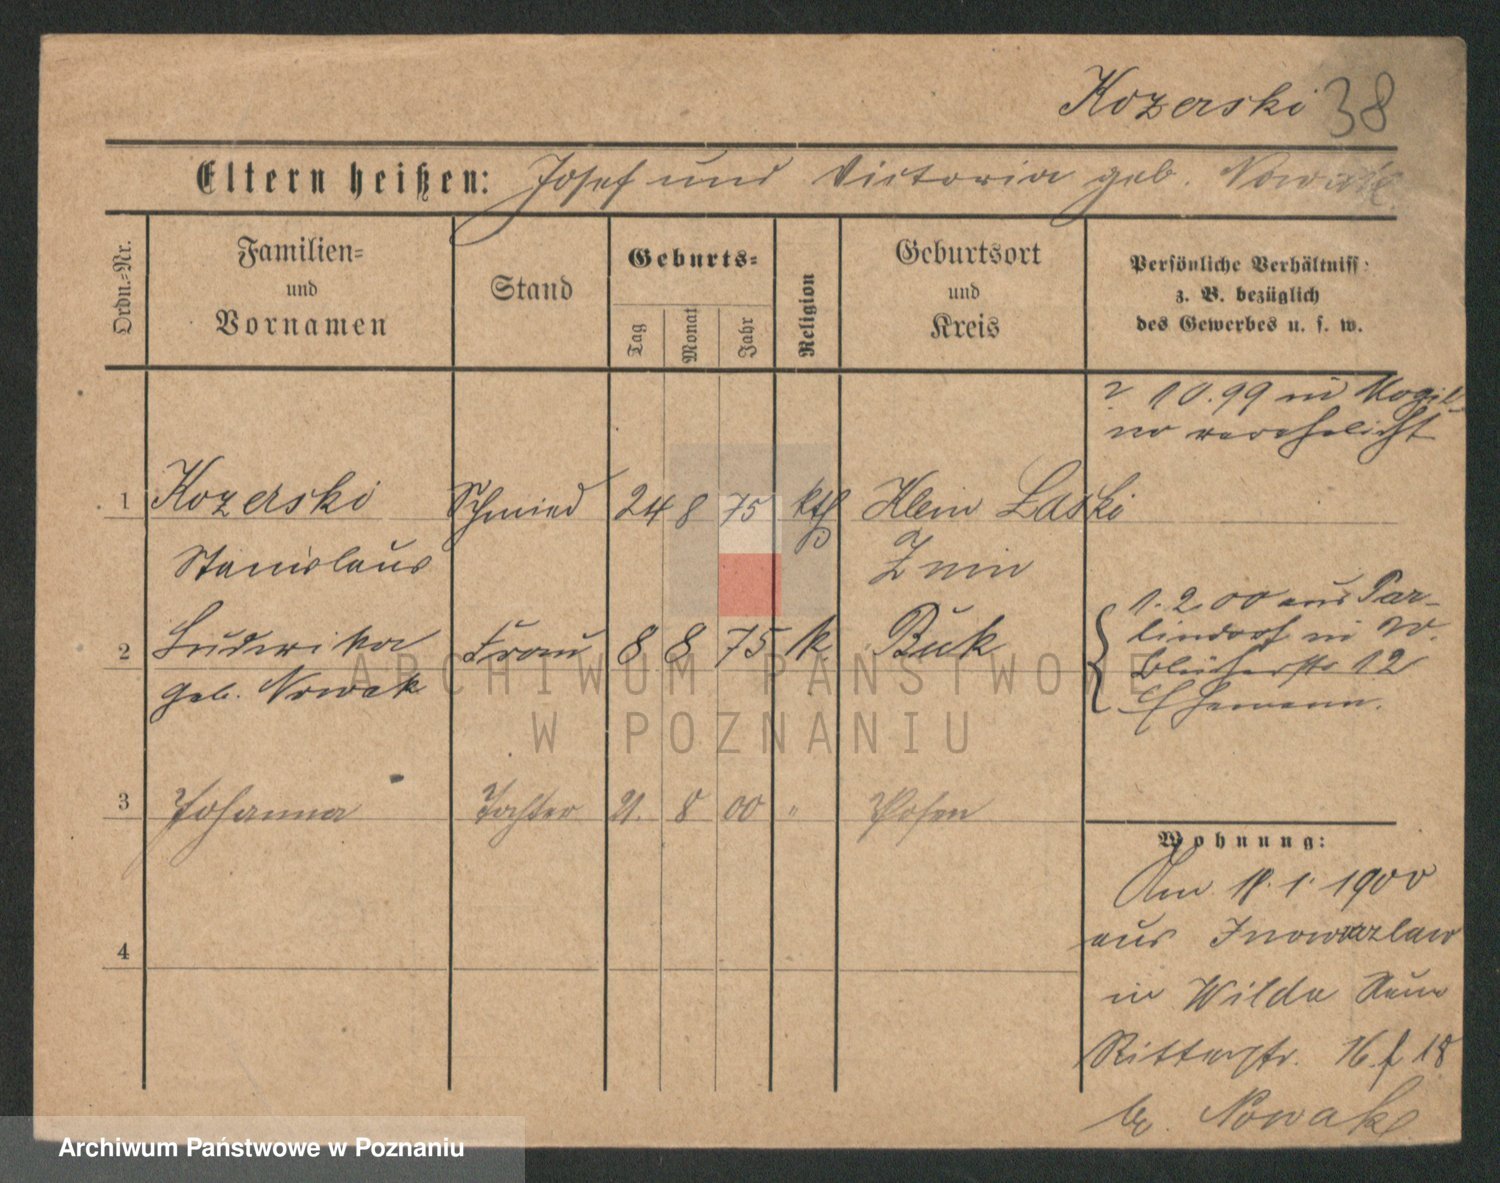 Kozerski 38
Eltern heißen: Josef und Victoria geb. Nowak
Ordn.-Nr.
Familien-
und
Vornamen
Stand
Geburts-
Tag
Monat
Jahr
Religion
Geburtsort
und
Kreis
Persönliche Verhältniss
z. B. bezüglich
des Gewerbes u. s. w.
10.99 in Mogil-
no verehelicht
1 Kozerski Schmied 24 8 75 kth Klein Laski
Stanislaus Znin
2 Ludwika Frau 8 8 75 k. Buk
geb. Nowak
1.2.00 aus Par-
lindorf in W.
Blücherstr 12
Ehemann.
3 Johanna Tochter 21. 8 00 " Posen
4
Wohnung:
Am 1. 1900
aus Inowrazlaw
in Wilda Neue
Ritterstr. 16 f 18
b. Nowak
ARCHIWUM PAŃSTWOWE
W POZNANIU
Archiwum Państwowe w Poznaniu